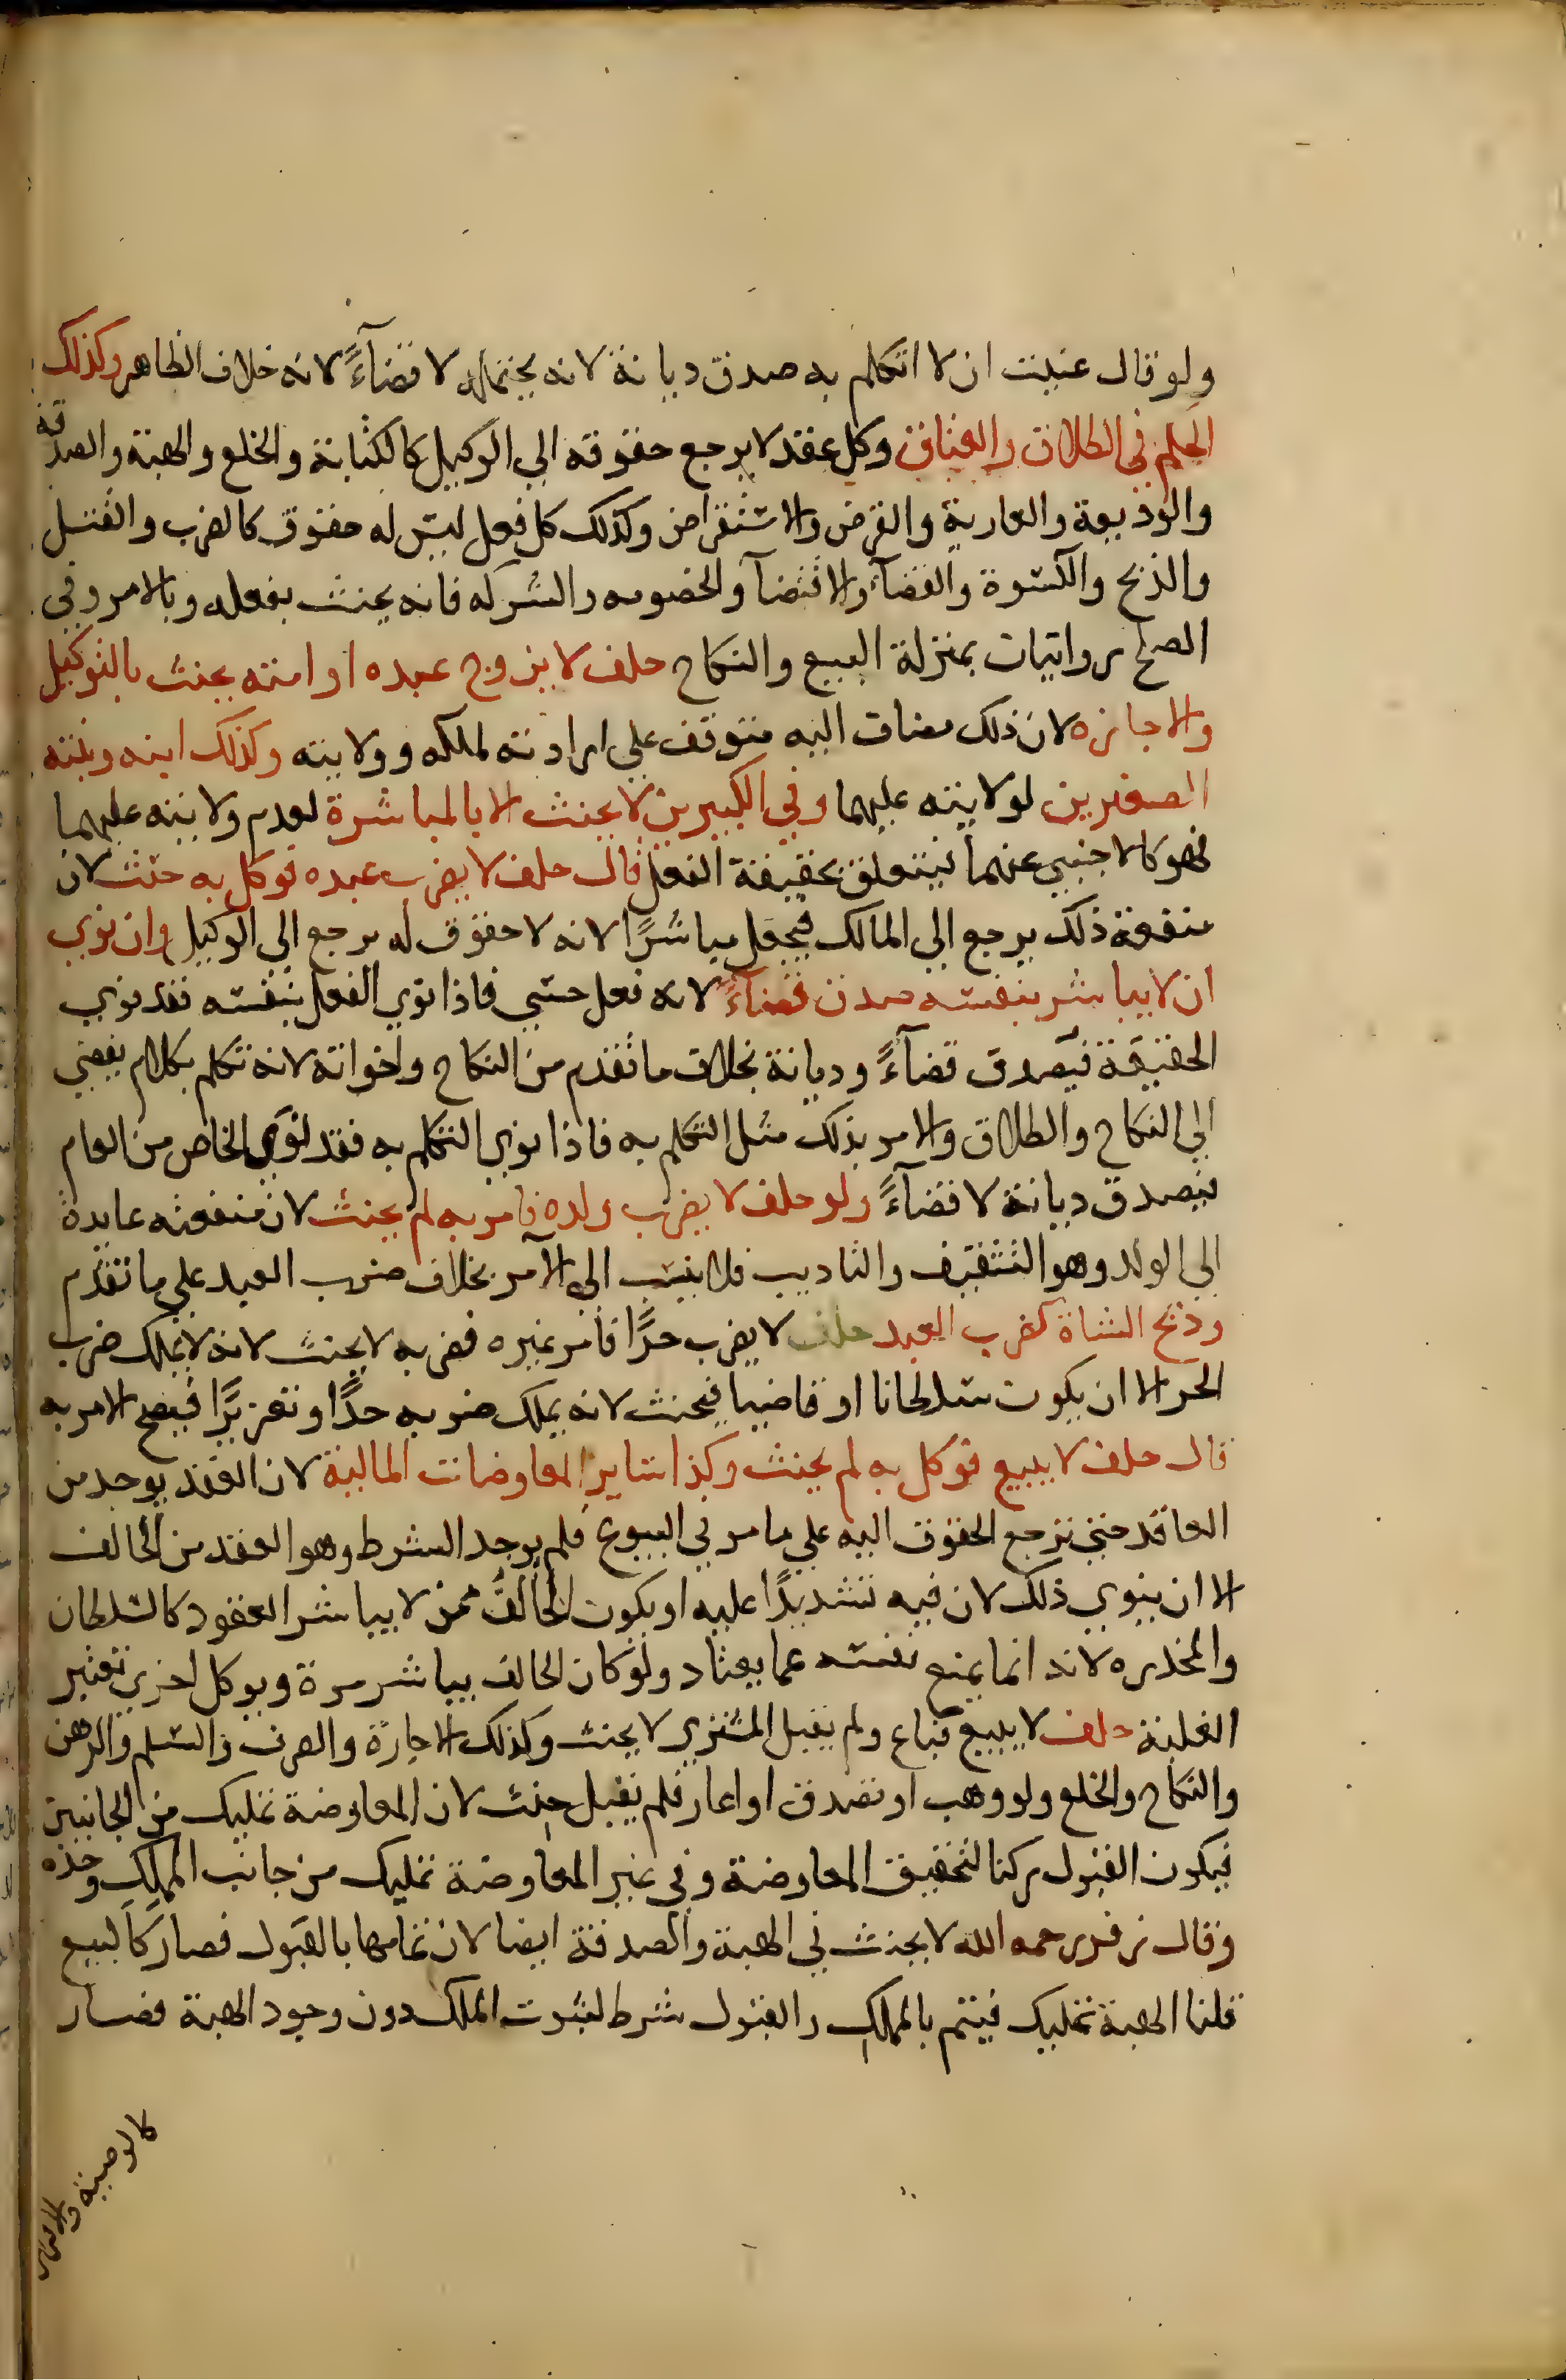 ولو قال عنيت ان لا اتكلم به صدق ديانة لانه يحتمله لا قضآءً لانه خلاف الظاهر وكذلك
الحكم في الطلاق والعتاق وكل عقد لا يرجع حقوقه الي الوكيل كالكتابة والخلع والهبة والصدقة
والوديعة والعارية والقرض والاستقراض وكذلك كل فعل ليس له حقوق كالضرب والقتل
والذبح والكسوة والقضآء والاقتضآ والخصومه والشركه فانه يحنث بفعله وبالامر وفي
الصلح روايتان بمنزلة البيع والنكاح حلف لا يزوج عبده او امته يحنث بالتوكيل
والاجازه لان ذلك مضاف اليه متوقف علي ارادته لملكه وولايته وكذلك ابنه وبنته
الصغيرين لولايته عليهما وفي الكبيرين لا يحنث الا بالمباشرة لعدم ولايته عليهما
فهو كالاجنبي عنهما فيتعلق بحقيقة الفعل قال حلف لا يضرب عبده فوكل به حنث لان
منفعة ذلك يرجع الي المالك فيجعل مباشرًا لانه لا حقوق له يرجع الي الوكيل وان نوي
ان لا يباشر بنفسه صدق قضآءً لانه فعل حسي فاذا نوي الفعل بنفسه فقد نوي
الحقيقة فيصدق قضآءً وديانة بخلاف ما تقدم من النكاح واخواته لانه تكلم بكلام يفضي
الي النكاح والطلاق والامر بذلك مثل التكلم به فاذا نوي التكلم به فقد نوي الخاص من العام
فيصدق ديانة لا قضآءً ولو حلف لا يضرب ولده فامر به لم يحنث لان منفعته عايدة
الي الولد وهو التثقيف والتاديب فلا ينسب الي الآمر بخلاف ضرب العبد علي ما تقدم
وذبح الشاة كضرب العبد حلف لا يضرب حرًا فامر غيره فضربه لا يحنث لانه لا يملك ضرب
الحر الا ان يكون سلطانا او قاضيا فيحنث لانه يملك ضربه حدًا وتعزيرًا فيصح الامر به
قال حلف لا يبيع فوكل به لم يحنث وكذا ساير المعاوضات المالية لان العقد يوجد من
العاقد حتي ترجع الحقوق اليه علي ما مر في البيوع فلم يوجد الشرط وهو العقد من الحالف
الا ان ينوي ذلك لان فيه تشديدًا عليه او يكون الحالف ممن لا يباشر العقود كالسلطان
والمخدره لانه انما يمنع نفسه عما يعتاد ولو كان الحالف يباشر مرة ويوكل اخري تعتبر
الغلبة حلف لا يبيع فباع ولم يقبل المشتري لا يحنث وكذلك الاجارة والصرف والسلم والرهن
والنكاح والخلع ولو وهب او تصدق او اعار فلم يقبل حنث لان المعاوضة تمليك من الجانبين
فيكون القبول ركنا لتحقيق المعاوضة وفي غير المعاوضة تمليك من جانب المملك وحده
وقال زفر رحمه الله لا يحنث في الهبة والصدقة ايضا لان تمامها بالقبول فصار كالبيع
قلنا الهبة تمليك فيتم بالمملك والقبول شرط لثبوت الملك دون وجود الهبة فصار
كالوصية والاقرار